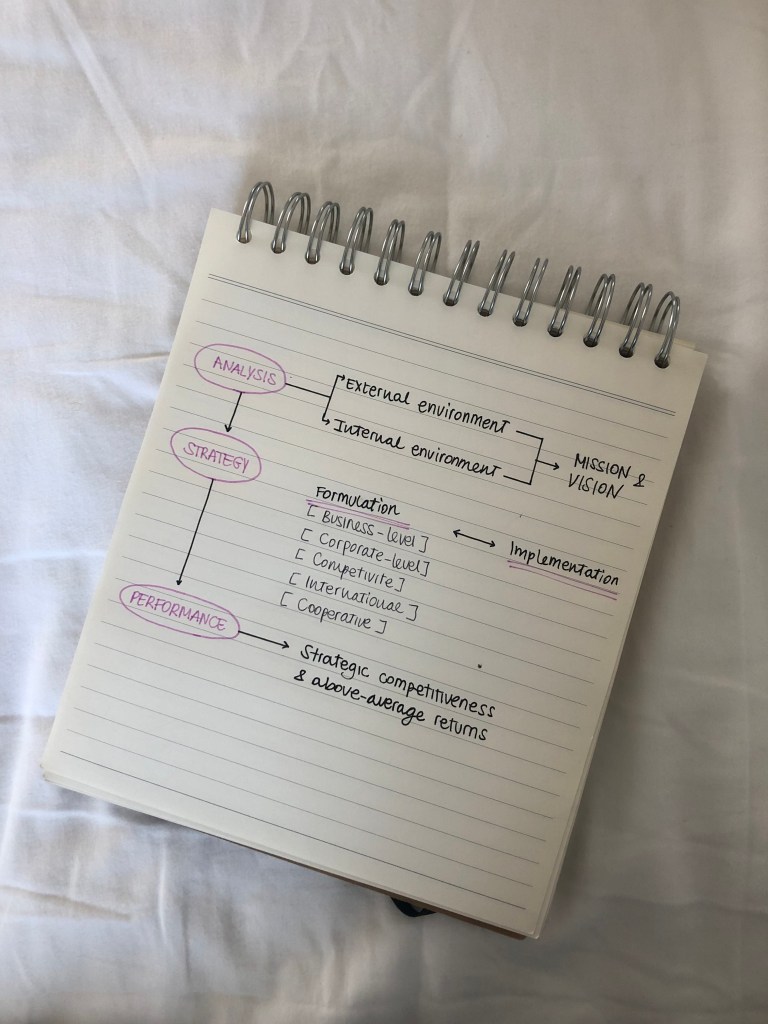 ANALYSIS
External environment
Internal environment
MISSION &
VISION
STRATEGY
Formulation
[ Business-level ]
[ Corporate-level]
[ Competivite ]
[ International ]
[ Cooperative ]
Implementation
PERFORMANCE
Strategic competitiveness
& above-average returns